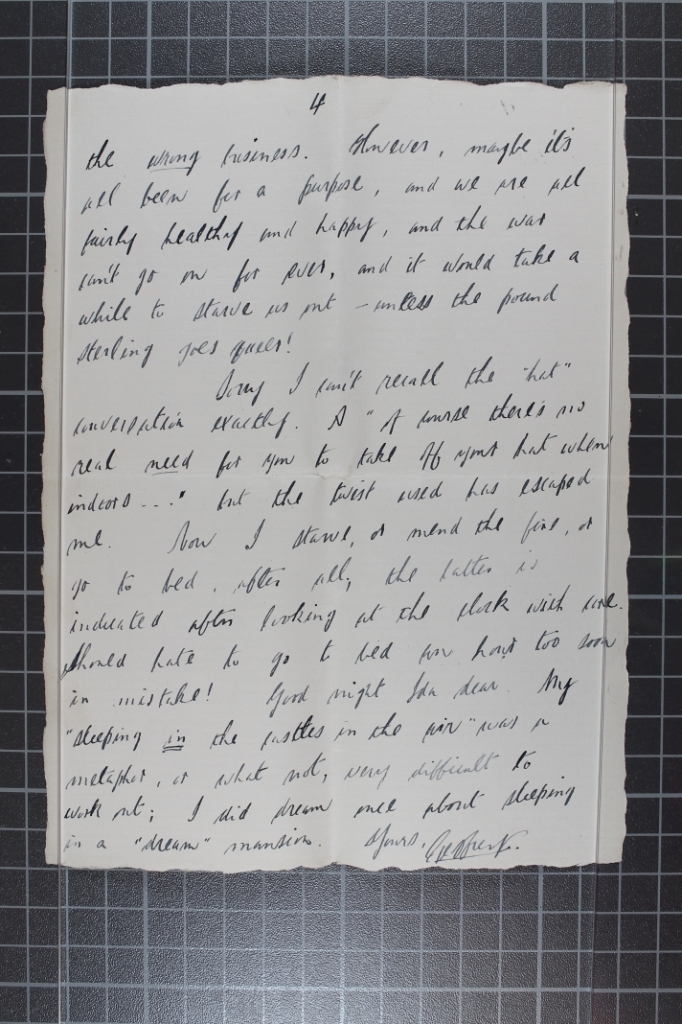 4
the wrong business. However, maybe it's
all been for a purpose, and we are all
fairly healthy and happy, and the war
can't go on for ever, and it would take a
while to starve us out – unless the pound
sterling goes queer!
Sorry I can't recall the "hat"
conversation exactly. A "Of course there's no
real need for you to take off your hat when
indoors ---" but the twist used has escaped
me. Now I starve, or mend the fire, or
go to bed. After all, the latter is
indicated after looking at the clock with care.
Should hate to go to bed an hour too soon
in mistake! Good night Ida dear. My
"sleeping in the castles in the air" was a
metaphor, or what not, very difficult to
work out; I did dream once about sleeping
in a "dream" mansion. Yours, Geoffrey.